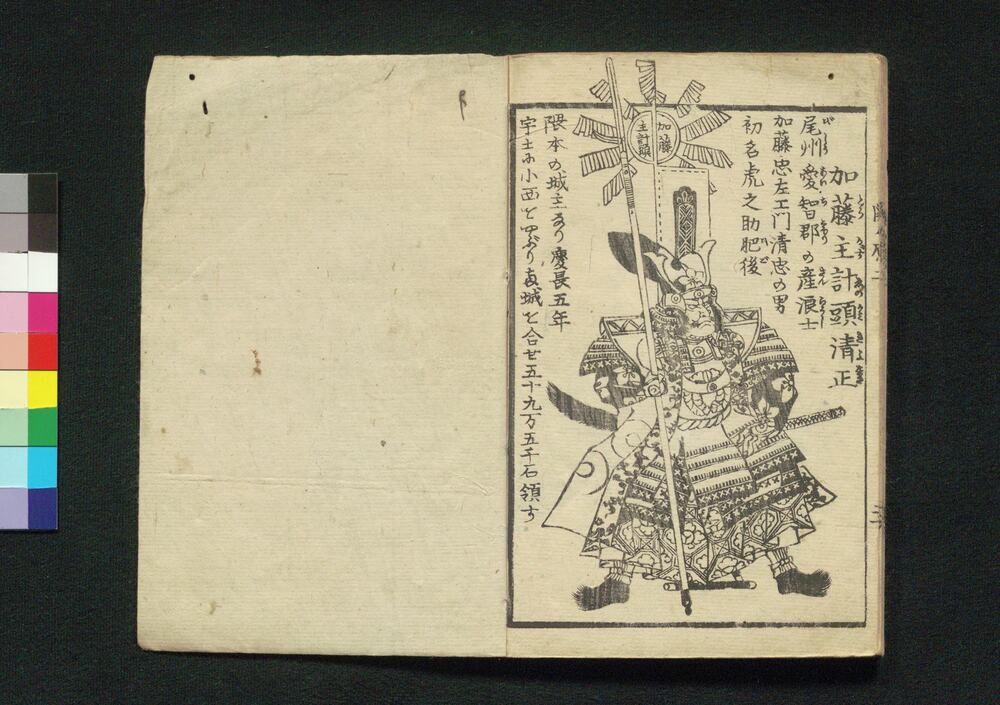 加藤主計頭清正
尾州愛智郡の産浪士
加藤忠左エ門清忠の男
初名虎之助肥後
加藤
主計頭
隈本の城主なり慶長五年
宇土に小西を亡ぼり両城を合せ五十九万五千石領す